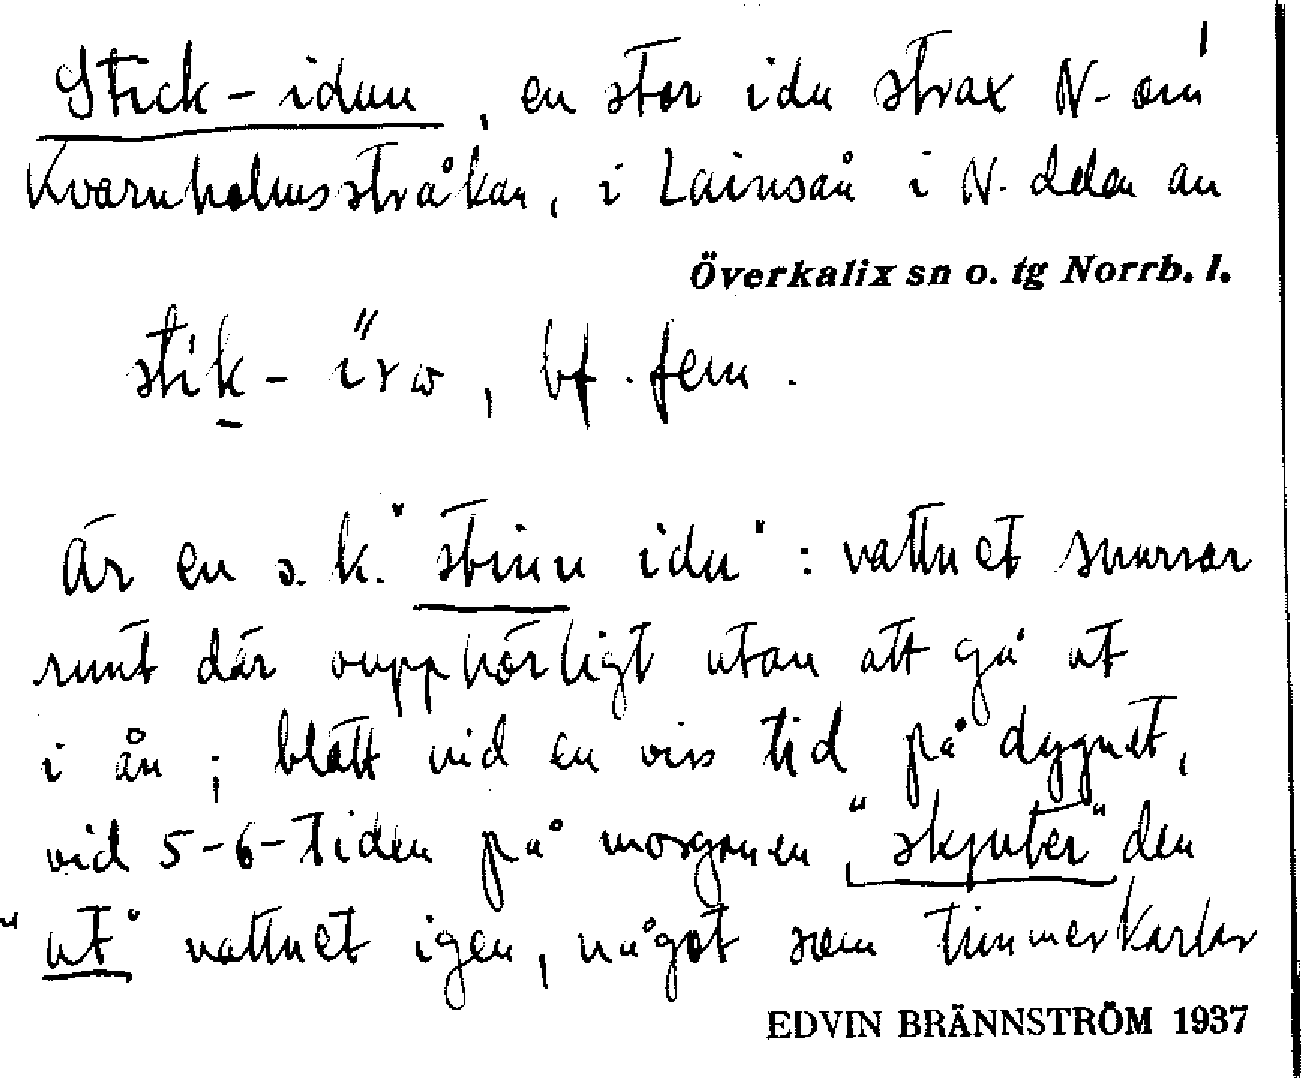 Stick-idan, en stor ida strax N-om
Kvarnholmsstråkan, i Lainsån i N. delen av
Överkalix sn o. tg Norrb. l.
stik-, bf. fem.
Är en s.k. "stinn ida": vattnet snurrar
runt där oupphörligt utan att gå ut
i ån; blott vid en viss tid på dygnet,
vid 5-6-tiden på morgonen, "skjuter" den
"ut" vattnet igen, något som timmerkarlar
EDVIN BRÄNNSTRÖM 1937